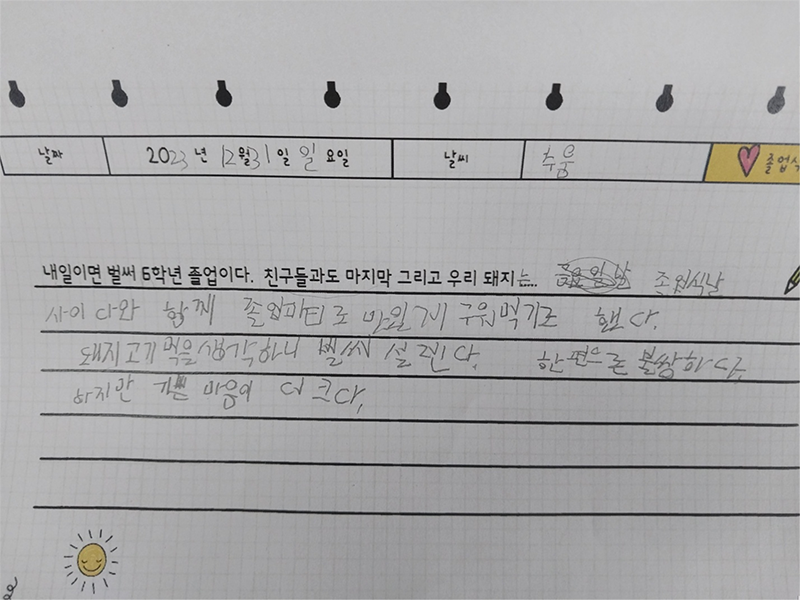 날짜 2023년 12월 31일 일요일 날씨 추움 졸업식
내일이면 벌써 6학년 졸업이다. 친구들과도 마지막 그리고 우리 돼지는... 졸업식날
사이다와 함께 졸업파티로 맛있게 구워먹기로 했다.
돼지고기 먹을 생각하니 벌써 설렌다. 한편으론 불쌍하다.
하지만 기쁜 마음이 더 크다.